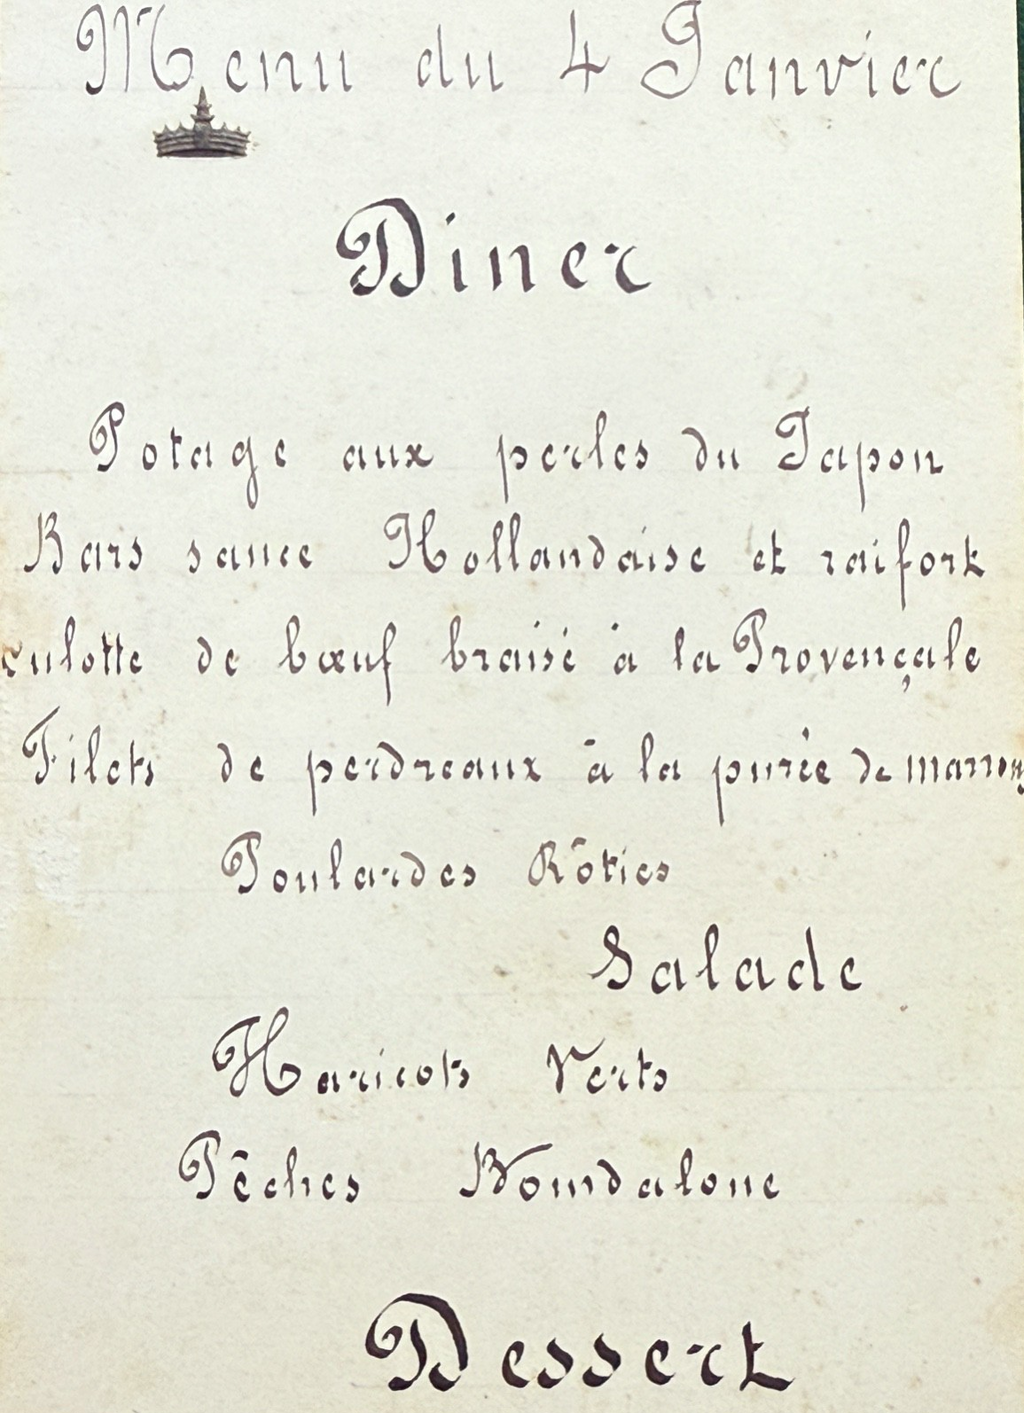 Menu du 4 Janvier
Diner
Potage aux perles du Japon
Bars sauce Hollandaise et raifort
culotte de bœuf braisé à la Provençale
Filets de perdreaux à la purée de marrons
Poulardes Rôties
Salade
Haricots Verts
Pêches Bourdaloue
Dessert